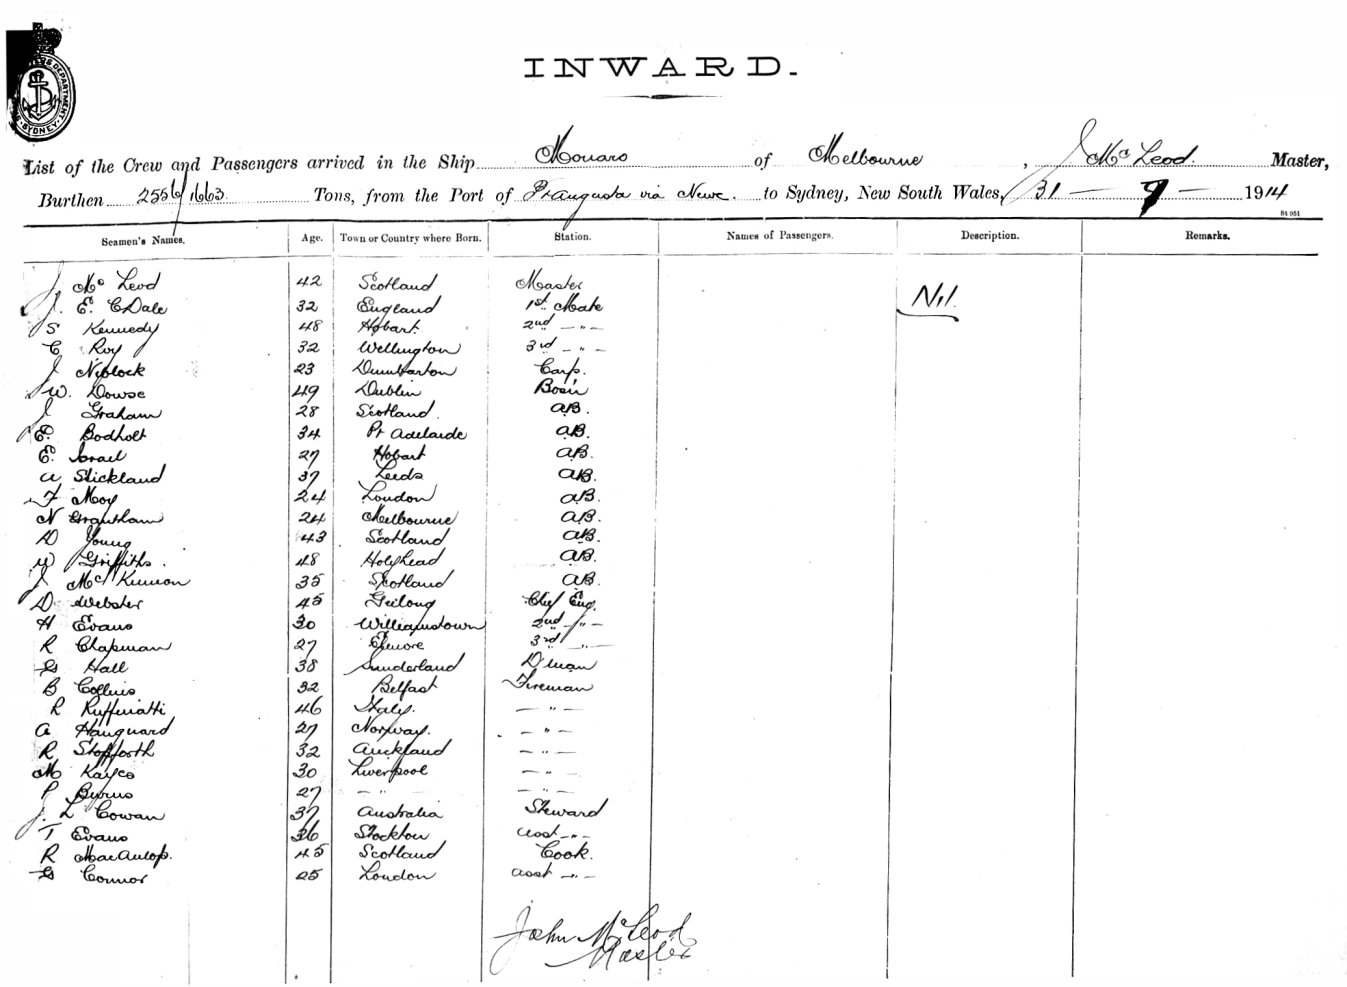 INWARD.
List of the Crew and Passengers arrived in the Ship Monaro of Melbourne, J McLeod. Master,
Burthen 2556/1663 Tons, from the Port of Pt Augusta via Newc. to Sydney, New South Wales, 31 — 7 — 1914
St 951
Seamen's Names. Age. Town or Country where Born. Station. Names of Passengers. Description. Remarks.
J McLeod 42 Scotland Master
J. E. C Dale 32 England 1st Mate Nil.
S Kennedy 48 Hobart 2nd — " —
C Roy 32 Wellington 3rd — " —
J Niblock 23 Dumbarton Carp.
W. Dowse 49 Dublin Bosn
J Graham 28 Scotland. AB.
E. Bodholt 34 Pt Adelaide AB.
E. Israel 27 Hobart AB.
A Stickland 37 Leeds AB.
F Moy 24 London AB.
N Grantham 24 Melbourne AB.
D Young 43 Scotland AB.
W Griffiths. 48 Holyhead AB.
J McKinnon 35 Scotland AB.
D Webster 45 Geilong Chef Eng.
H Evans 30 Williamstown 2nd — " —
R Chapman 27 3rd — " —
G Hall 38 Sunderland D'man
B Collins 32 Belfast Fireman
R Ruffiniatti 46 Italy. — " —
A Hauguard 27 Norway. — " —
R Stopforth 32 Auckland — " —
M Kayes 30 Liverpool — " —
P Burns 27 — " — — " —
J. L Cowan 37 Australia Steward
T Evans 36 Stockton Asst — " —
R 45 Scotland Cook.
G Connor 25 London Asst — " —
John McLeod
Master